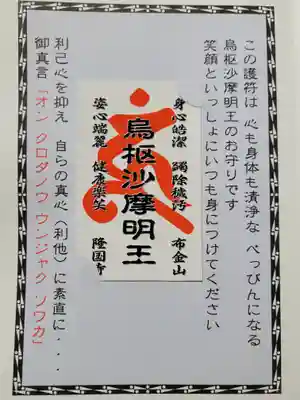 この護符は 心も身体も清浄な べっぴんになる
烏枢沙摩明王のお守りです
笑顔といっしょにいつも身につけてください
身心皓潔 觸除穢汚 布金山
烏枢沙摩明王
姿心端麗 健康楽笑 隆国寺
利己心を抑え 自らの真心(利他)に素直に・・・
御真言「オン クロダノウ ウンジャク ソワカ」